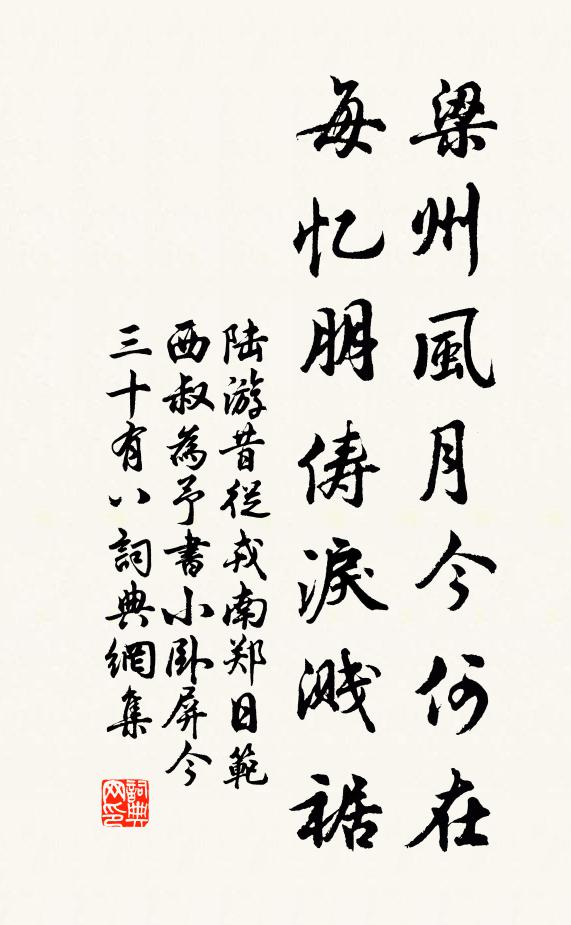 梁州風月今何在
每忆朋俦淚溅裾
陆游昔從戎南郑日範
西叔為予書小卧屏今
三十有八詞典網集
詞典网印